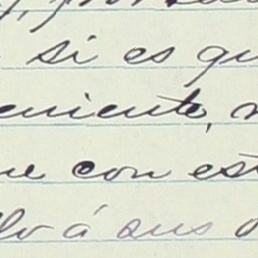 si es qu
eniente,
ue con est
lo á sus o